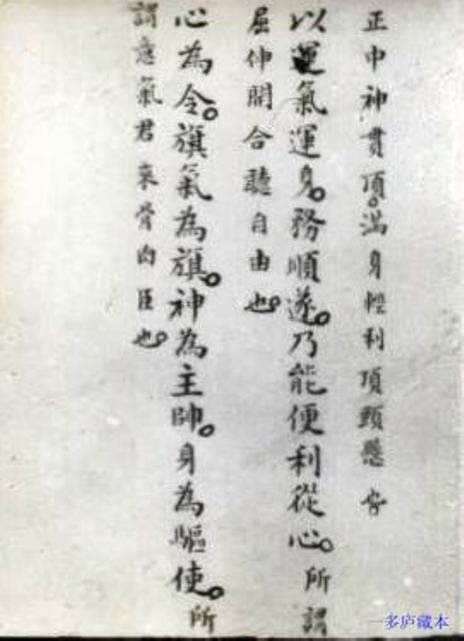 正中神貫頂。滿身輕利頂頭懸
以運氣運身。務順遂。乃能便利從心。所謂
屈伸開合聽自由也。
心為令。旗氣為旗。神為主帥。身為驅使。所
謂意氣君來骨肉臣也。
一多庐藏本